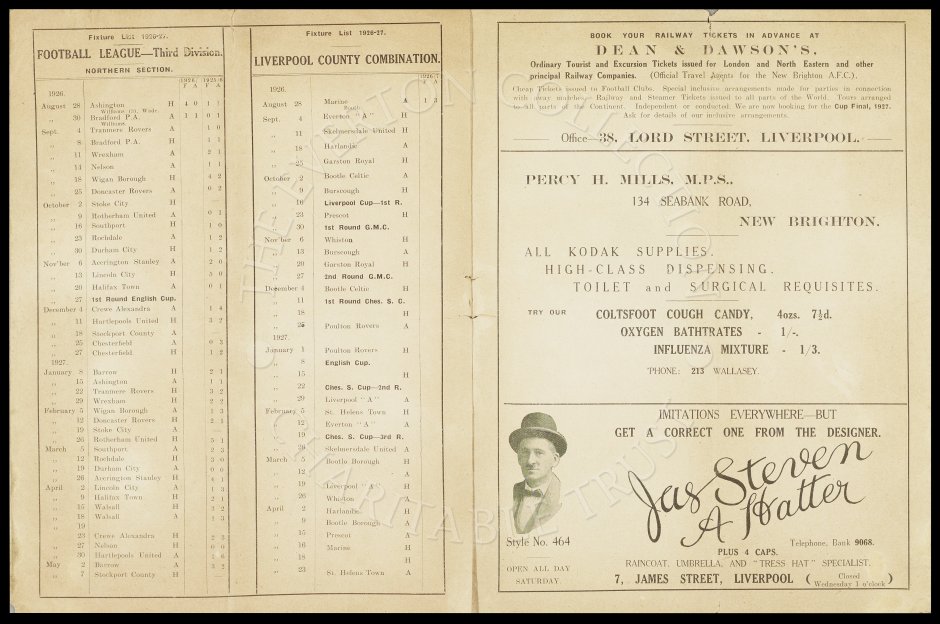 Fixture List 1926-27.
FOOTBALL LEAGUE—Third Division.
NORTHERN SECTION.
1926 1925-6
F A F A
1926.
August 28 Ashington H 4 0 1 1
Williams (3), Wade.
„ 30 Bradford P.A. A 1 1 0 1
Williams.
Sept. 4 Tranmere Rovers A 1 0
„ 8 Bradford P.A. H 1 1
„ 11 Wrexham A 2 1
„ 14 Nelson A 1 1
„ 18 Wigan Borough H 4 2
„ 25 Doncaster Rovers A 0 2
October 2 Stoke City H —
„ 9 Rotherham United A 0 1
„ 16 Southport H 1 0
„ 23 Rochdale A 1 2
„ 30 Durham City H 1 2
Nov'ber 6 Accrington Stanley A 2 0
„ 13 Lincoln City H 5 0
„ 20 Halifax Town A 0 1
„ 27 1st Round English Cup.
December 4 Crewe Alexandra A 1 4
„ 11 Hartlepools United H 3 2
„ 18 Stockport County A
„ 25 Chesterfield A 0 3
„ 27 Chesterfield H 1 2
1927.
January 8 Barrow H 2 1
„ 15 Ashington A 1 1
„ 22 Tranmere Rovers H 3 2
„ 29 Wrexham H 2 2
February 5 Wigan Borough A 1 3
„ 12 Doncaster Rovers H 2 1
„ 19 Stoke City A —
„ 26 Rotherham United H 5 1
March 5 Southport A 2 3
„ 12 Rochdale H 3 0
„ 19 Durham City A 0 0
„ 26 Accrington Stanley H 4 1
April 2 Lincoln City A 1 3
„ 9 Halifax Town H 2 1
„ 15 Walsall H 3 2
„ 18 Walsall A 1 3
„ 19
„ 23 Crewe Alexandra H 2 3
„ 27 Nelson H 0 0
„ 30 Hartlepools United A 1 6
May 2 Barrow A 3 2
„ 7 Stockport County H —
Fixture List 1926-27.
LIVERPOOL COUNTY COMBINATION.
1926-7
F A
1926.
August 28 Marine A 1 3
Sept. 4 Everton "A" H
„ 11 Skelmersdale United H
„ 18 Harlandic A
„ 25 Garston Royal H
October 2 Bootle Celtic A
„ 9 Burscough H
„ 16 Liverpool Cup—1st R.
„ 23 Prescot H
„ 30 1st Round G.M.C.
Nov'ber 6 Whiston H
„ 13 Burscough A
„ 20 Garston Royal H
„ 27 2nd Round G.M.C.
December 4 Bootle Celtic H
„ 11 1st Round Ches. S. C.
„ 18 H
„ 25 Poulton Rovers A
1927.
January 1 Poulton Rovers H
„ 8 English Cup.
„ 15 H
„ 22 Ches. S. Cup—2nd R.
„ 29 Liverpool "A" A
February 5 St. Helens Town H
„ 12 Everton "A" A
„ 19 Ches. S. Cup—3rd R.
„ 26 Skelmersdale United A
March 5 Bootle Borough H
„ 12 A
„ 19 Liverpool "A" H
„ 26 Whiston A
April 2 Harlandic H
„ 9 Bootle Borough A
„ 15 Prescot A
„ 16 Marine H
„ 18 H
„ 23 St. Helens Town A
BOOK YOUR RAILWAY TICKETS IN ADVANCE AT
DEAN & DAWSON'S,
Ordinary Tourist and Excursion Tickets issued for London and North Eastern and other
principal Railway Companies. (Official Travel Agents for the New Brighton A.F.C.).
Cheap Tickets issued to Football Clubs. Special inclusive arrangements made for parties in connection
with away matches—Railway and Steamer Tickets issued to all parts of the World. Tours arranged
to all parts of the Continent. Independent or conducted. We are now looking for the Cup Final, 1927.
Ask for details of our inclusive arrangements.
Office—38, LORD STREET, LIVERPOOL.
PERCY H. MILLS, M.P.S.,
134 SEABANK ROAD,
NEW BRIGHTON.
ALL KODAK SUPPLIES.
HIGH-CLASS DISPENSING.
TOILET and SURGICAL REQUISITES.
TRY OUR COLTSFOOT COUGH CANDY, 4ozs. 7½d.
OXYGEN BATHTRATES - 1/-.
INFLUENZA MIXTURE - 1/3.
'PHONE: 213 WALLASEY.
IMITATIONS EVERYWHERE—BUT
GET A CORRECT ONE FROM THE DESIGNER.
Jas Steven
A Hatter
Style No. 464
Telephone, Bank 9068.
PLUS 4 CAPS.
RAINCOAT, UMBRELLA, AND "TRESS HAT" SPECIALIST,
OPEN ALL DAY
SATURDAY
7, JAMES STREET, LIVERPOOL (Closed Wednesday 1 o'clock)
© THE EVERTON COLLECTION CHARITABLE TRUST